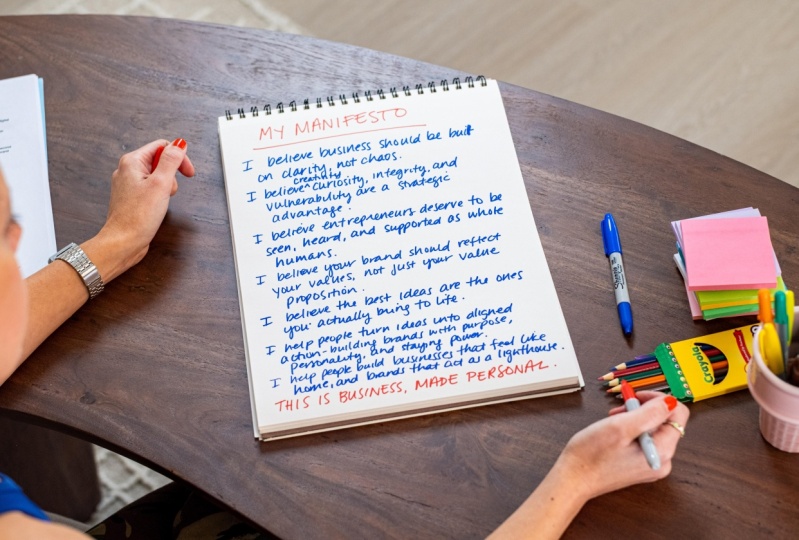 MY MANIFESTO
I believe business should be built
on clarity, not chaos.
I believe ^creativity, curiosity, integrity, and
vulnerability are a strategic
advantage.
I believe entrepreneurs deserve to be
seen, heard, and supported as whole
humans.
I believe your brand should reflect
your values, not just your value
proposition.
I believe the best ideas are the ones
you actually bring to life.
I help people turn ideas into aligned
action-building brands with purpose,
personality, and staying power.
I help people build businesses that feel like
home, and brands that act as a lighthouse.
THIS IS BUSINESS, MADE PERSONAL.
Sharpie
Crayola